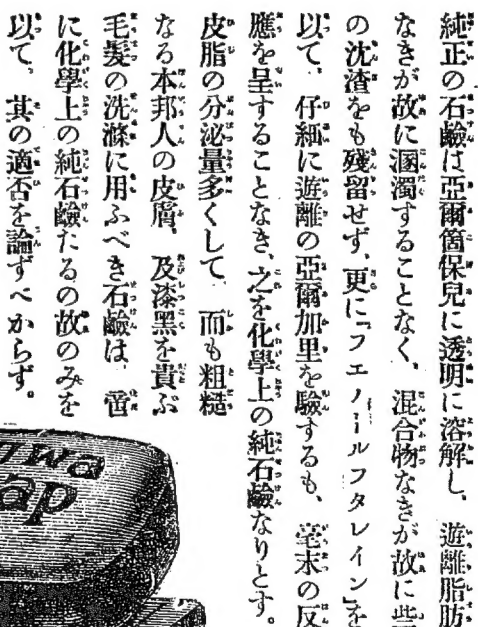 純正の石鹼は亞爾箇保兒に透明に溶解し、遊離脂肪
なきが故に溷濁することなく、混合物なきが故に些
の沈渣をも殘留せず、更に「フエノールフタレイン」を
以て、仔細に遊離の亞爾加里を驗するも、毫末の反
應を呈することなき、之を化學上の純石鹼なりとす。
皮脂の分泌量多くして、而も粗糙
なる本邦人の皮膚、及漆黑を貴ぶ
毛髮の洗滌に用ふべき石鹼は、啻
に化學上の純石鹼たるの故のみを
以て、其の適否を論ずべからず。